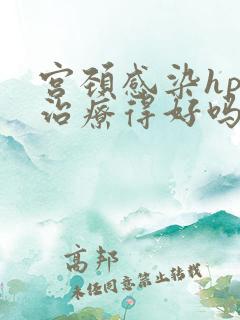 宫颈感染hp
治疗得好吗
高邦
未经同意禁止转载